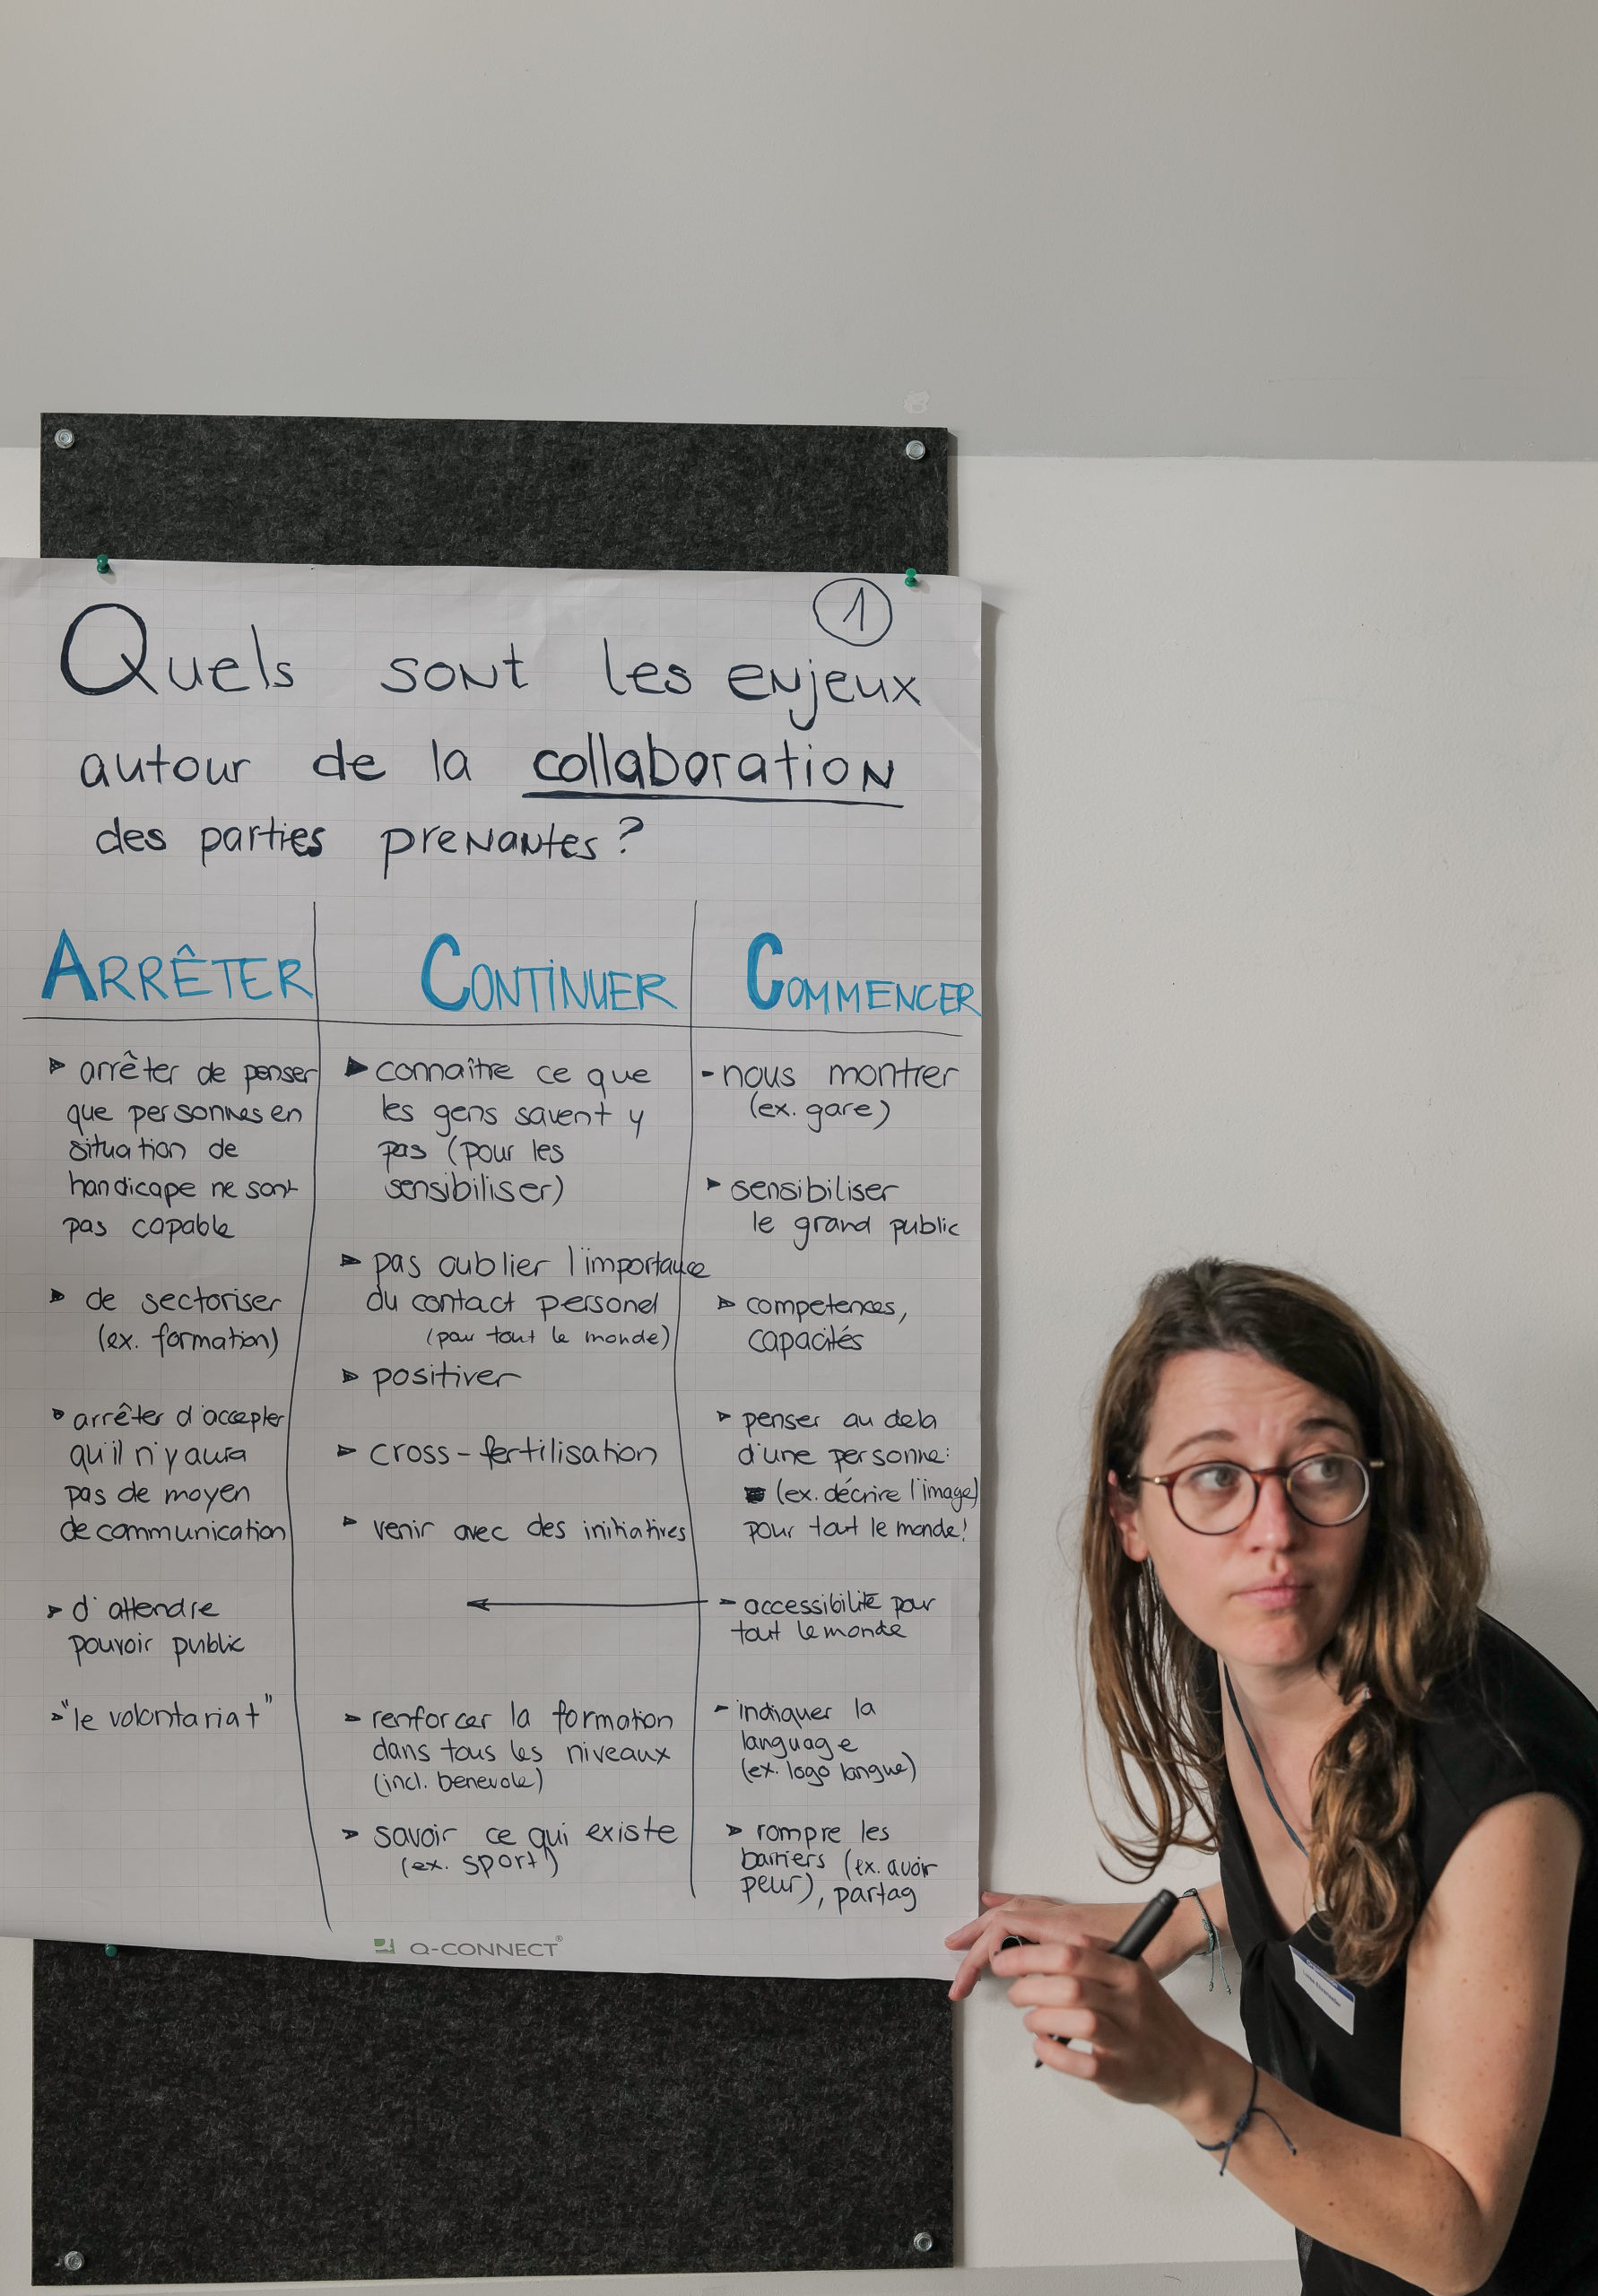 1
Quels sont les enjeux
autour de la collaboration
des parties prenantes?
ARRÊTER
arrêter de penser
que personnes en
situation de
handicape ne sont
pas capable
de sectoriser
(ex. formation)
arrêter d'accepter
qu'il n'y aura
pas de moyen
de communication
d'attendre
pouvoir public
"le volontariat"
CONTINUER
connaître ce que
les gens savent y
pas (pour les
sensibiliser)
pas oublier l'importance
du contact personel
(pour tout le monde)
positiver
cross-fertilisation
venir avec des initiatives
renforcer la formation
dans tous les niveaux
(incl. benevole)
savoir ce qui existe
(ex. sport)
COMMENCER
- nous montrer
(ex. gare)
sensibiliser
le grand public
competences,
capacités
penser au dela
d'une personne:
(ex. décrire l'image)
pour tout le monde!
accessibilité pour
tout le monde
- indiquer la
language
(ex. logo langue)
rompre les
barriers (ex. avoir
peur), partag
Q-CONNECT®